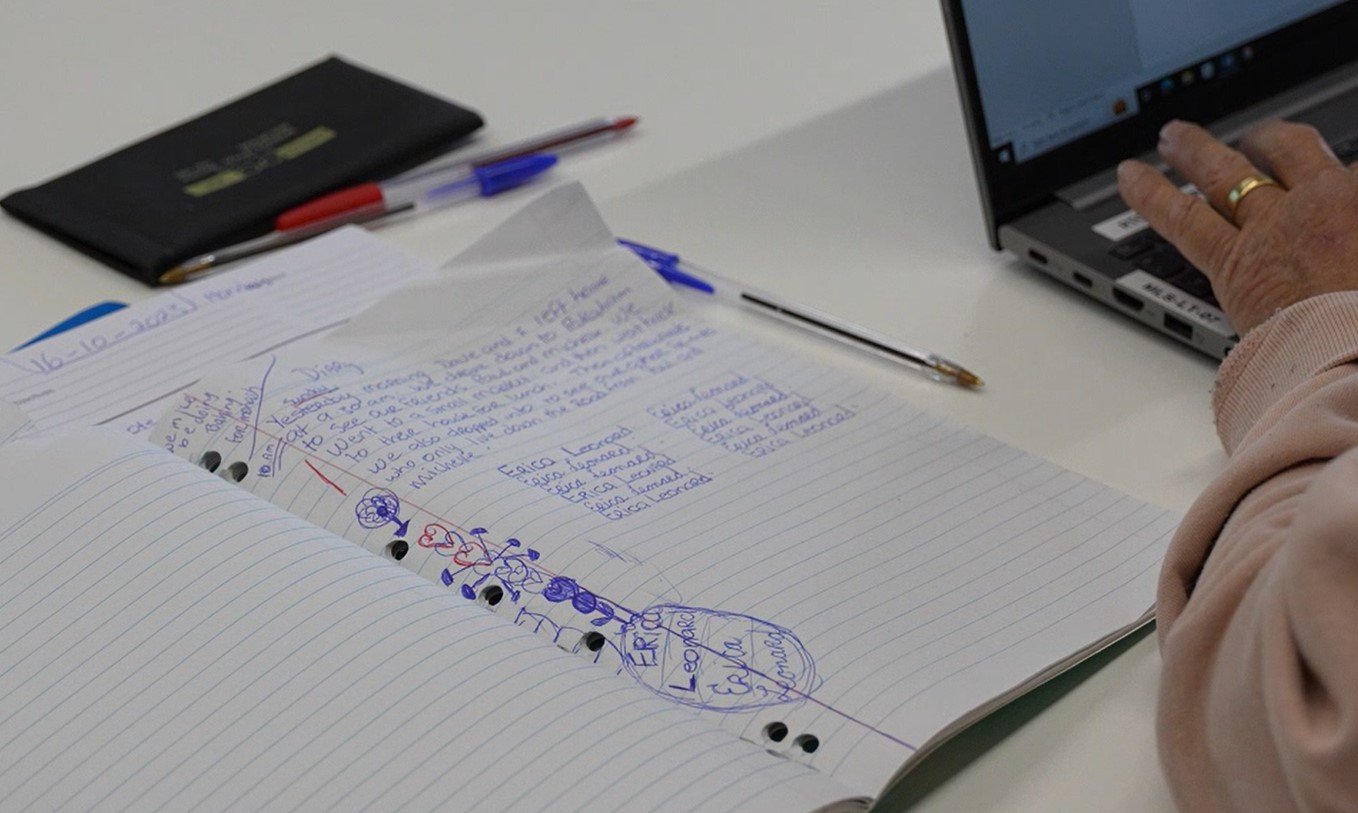 16-10-2023
Diary
we may
be doing
Baking
tomorrow
Sunday
Yesterday morning Dave and I left home
at 9 30 am we drove down to
to see our friends Paul and michelle we
went to a small market and then went back
to there house for lunch. Then
we also dropped into to see
who only live down the Road from Paul and
michelle
10 Am
Erica Leonard
Erica Leonard
Erica Leonard
Erica Leonard
Erica Leonard
Erica Leonard
Erica Leonard
Erica Leonard
Erica Leonard
Erica Leonard
Erica Leonard
Erica
Leonard
Erica
Leonard
MLB-LT-07